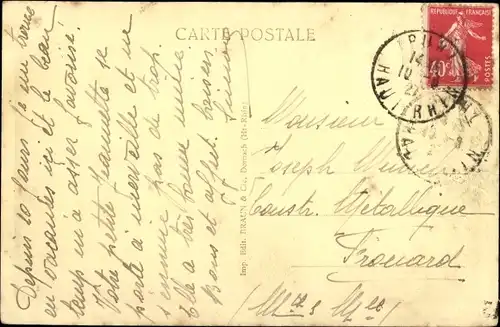 CARTE POSTALE
REPUBLIQUE FRANÇAISE
40c
POSTES
HAUT-RHIN
Depuis 10 jours je me trouve
en vacances ici et le beau
temps m'a assez favorisé.
Votre petite Jeannette se
porte à merveille et ne
s'ennuie pas de trop.
Elle a très bonne mine.
Bons et affect. baisers
Imp. Edit. BRAUN & Cie, Dornach (Ht-Rhin)
Monsieur
Joseph
Constr. Métallique
Frouard
(Mthe & Mlle)